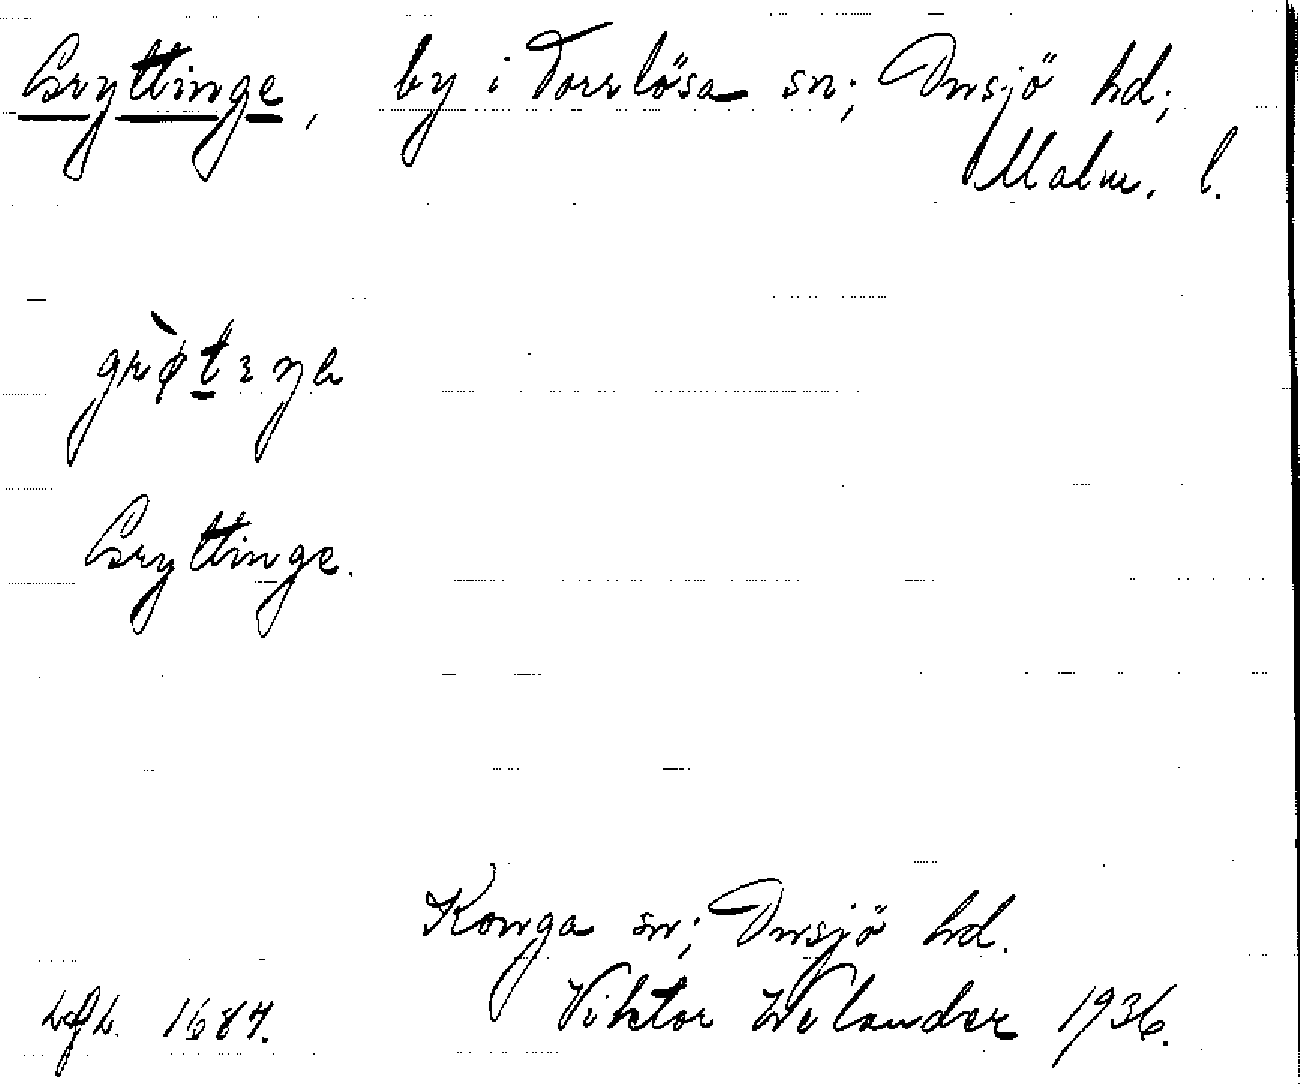 Gryttinge, by i Torrlösa sn; Onsjö hd;
Malm. l.
grø̀tɪŋə
Gryttinge.
Konga sn; Onsjö hd.
Lgh. 1687. Viktor Wilander 1936.